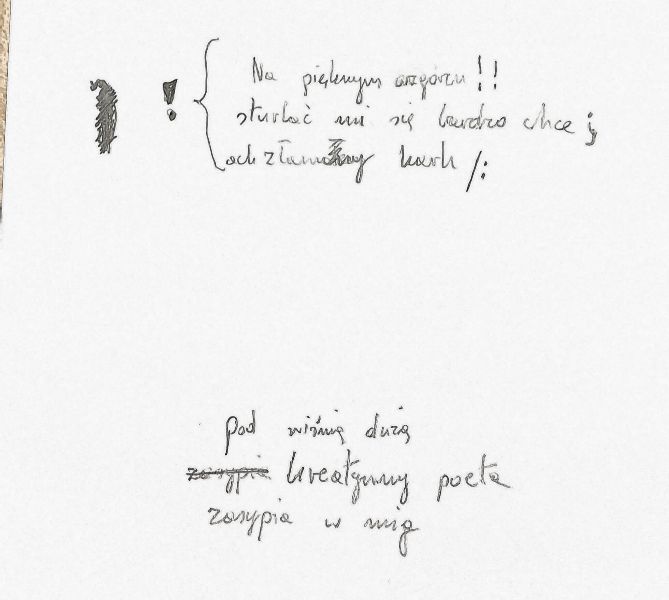 ! { Na pięknym wzgórzu !!
sturlać mi się bardzo chce ;
ach złamany kark /:
pod wiśnią dużą
zasypia kreatywny poeta
zasypia w mig